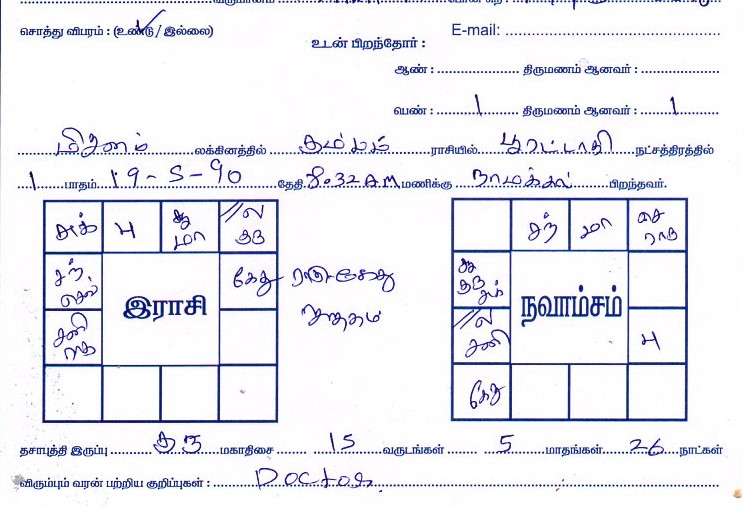 சொத்து விபரம் : (உண்டு / இல்லை)
E-mail:
உடன் பிறந்தோர் :
ஆண் : திருமணம் ஆனவர் :
பெண் : 1 திருமணம் ஆனவர் : 1
மிதுனம் லக்கினத்தில் கும்பம் ராசியில் பூரட்டாதி நட்சத்திரத்தில்
1 பாதம் 19-5-90 தேதி 8.32 AM மணிக்கு நாமக்கல் பிறந்தவர்.
சுக் பு சூ மா ல குரு
சந் செவ் கேது
இராசி
சனி ராகு
சுக் மா செ ராகு
நவாம்சம்
ல சனி பு
கேது
தசாபுத்தி இருப்பு குரு மகாதிசை 15 வருடங்கள் 5 மாதங்கள் 26 நாட்கள்
விரும்பும் வரன் பற்றிய குறிப்புகள் : Doctor